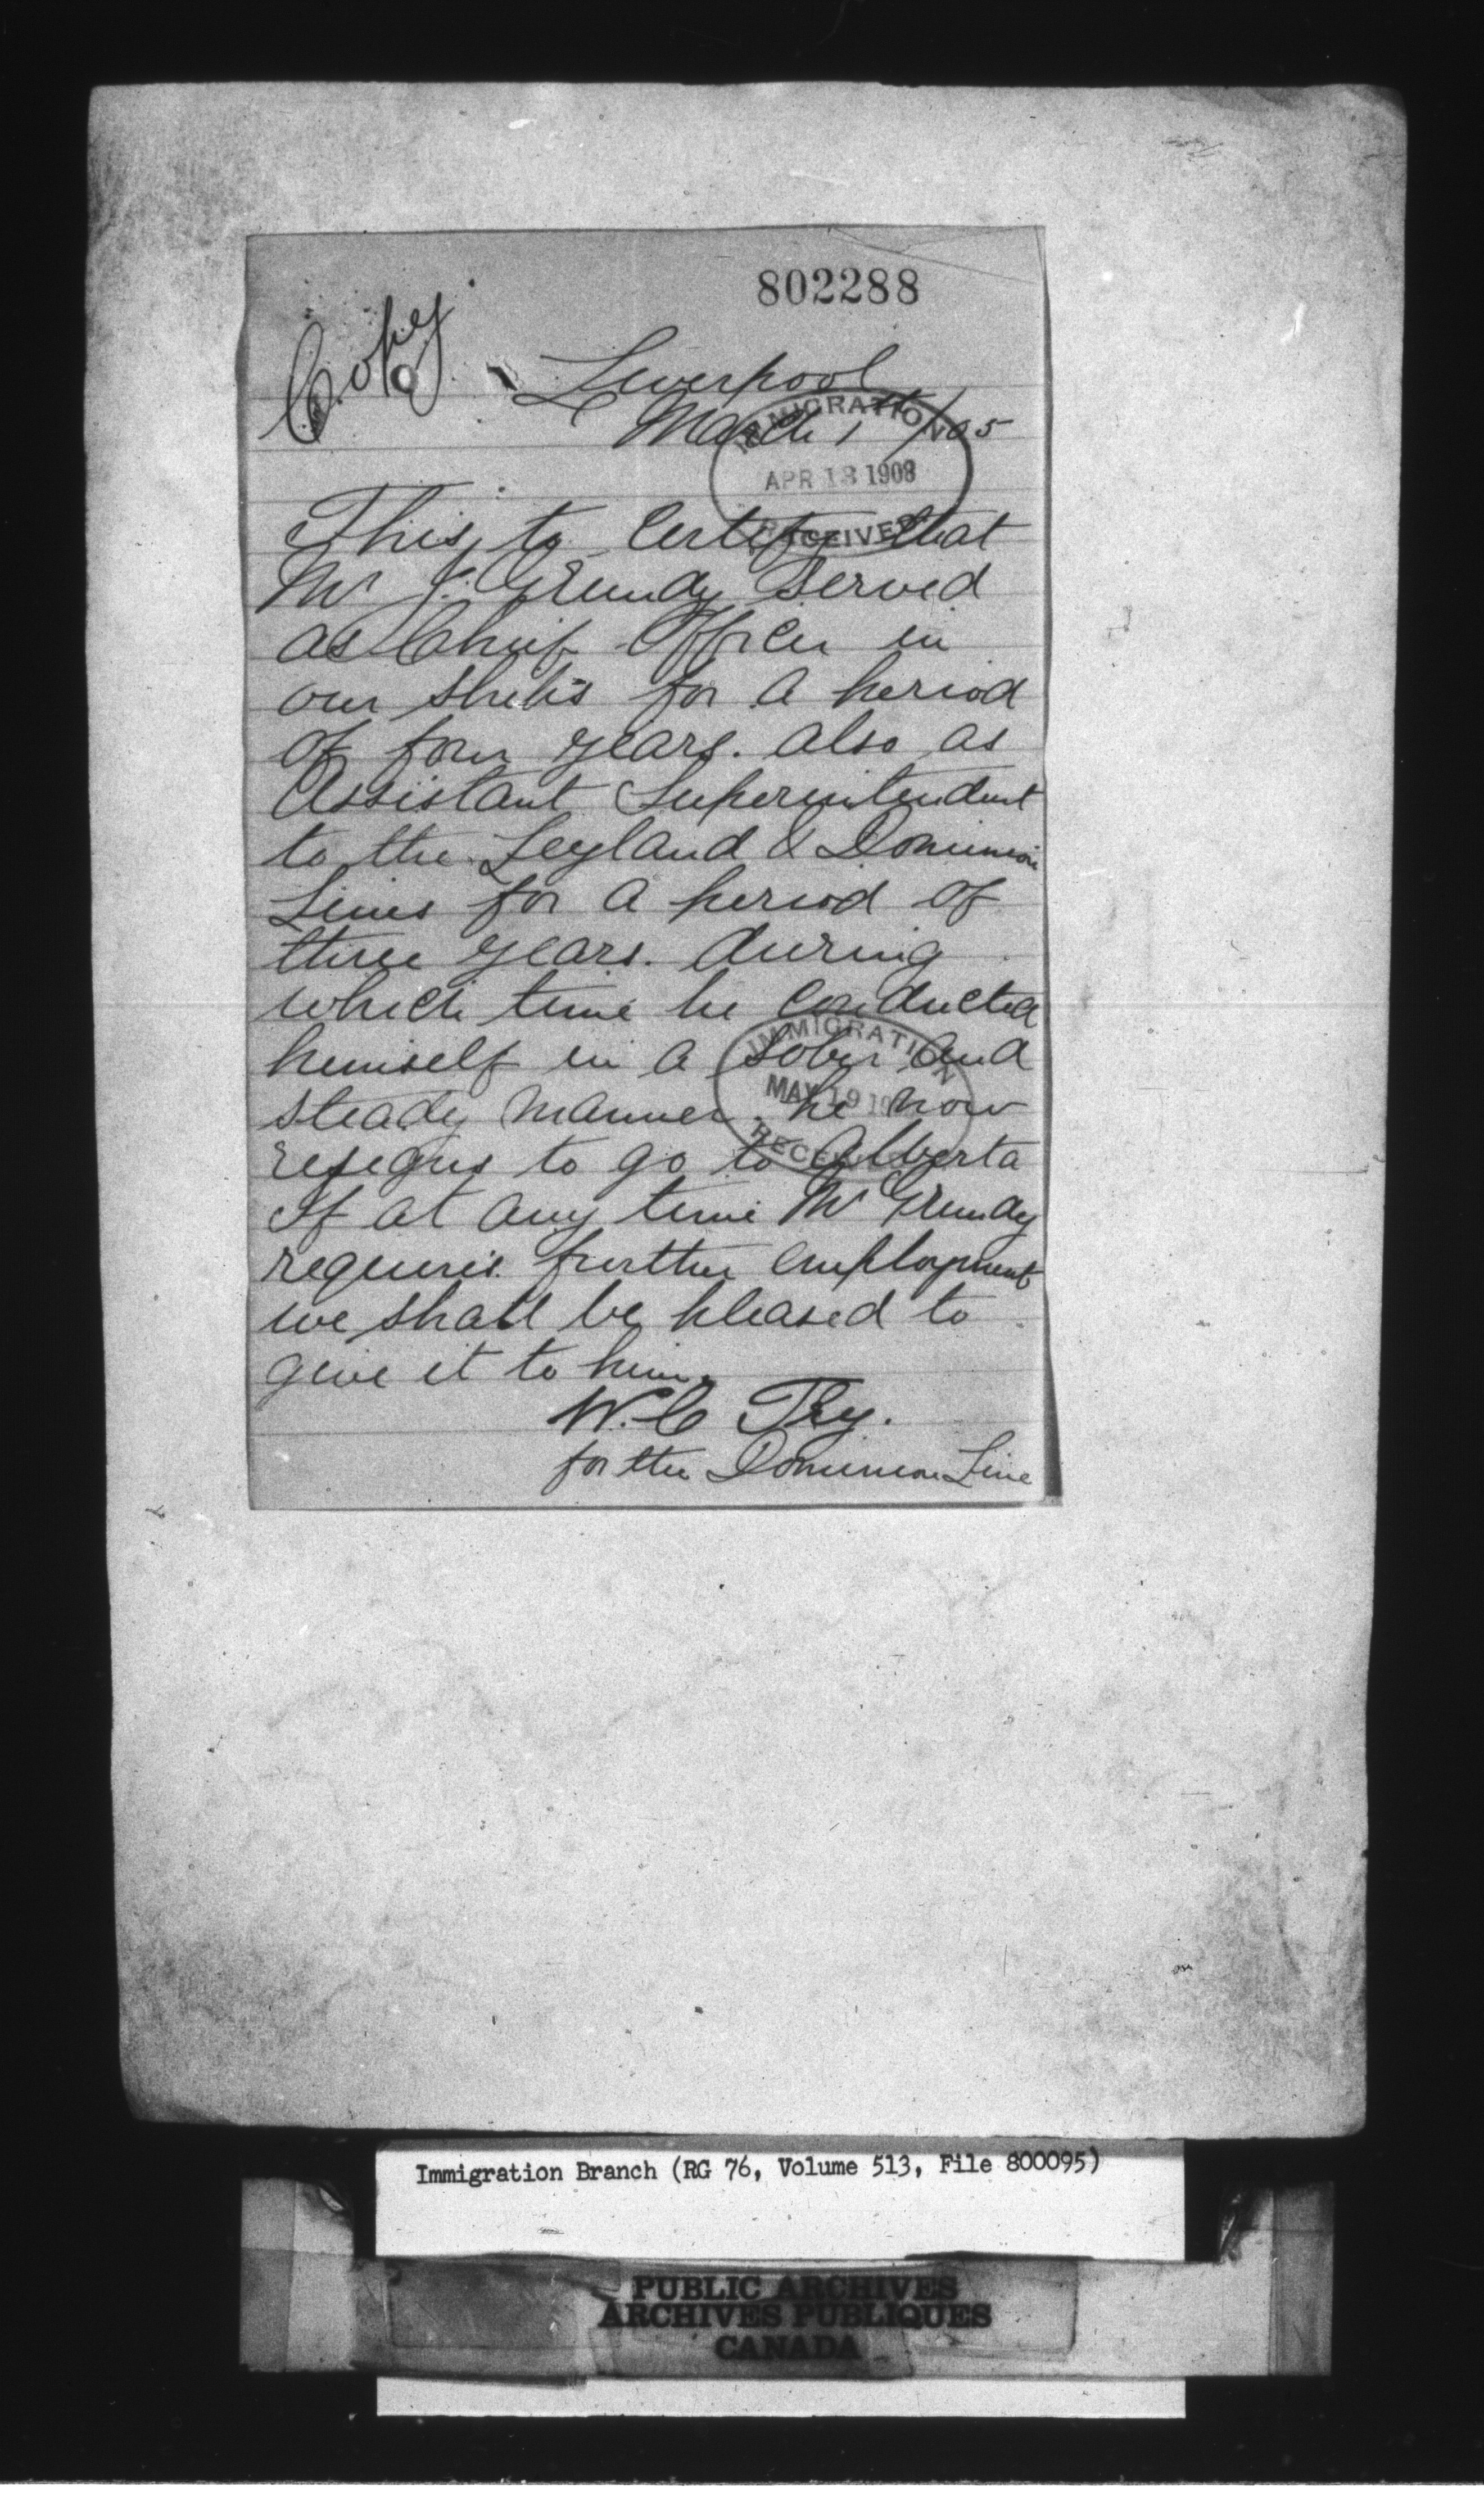 802288
Copy
Liverpool
March 1st/05
IMMIGRATION
APR 13 1908
RECEIVED
This to Certify that
Mr J. Grundy Served
as Chief Officer in
our ships for a period
of four years. also as
Assistant Superintendent
to the Leyland & Dominion
Lines for a period of
three years. during
which time he conducted
himself in a Sober and
steady manner. he now
resigns to go to Alberta
If at any time Mr Grundy
requires further employment
we shall be pleased to
give it to him.
IMMIGRATION
MAY 19
RECEIVED
W. C
for the Dominion Line
Immigration Branch (RG 76, Volume 513, File 800095)
PUBLIC ARCHIVES
ARCHIVES PUBLIQUES
CANADA